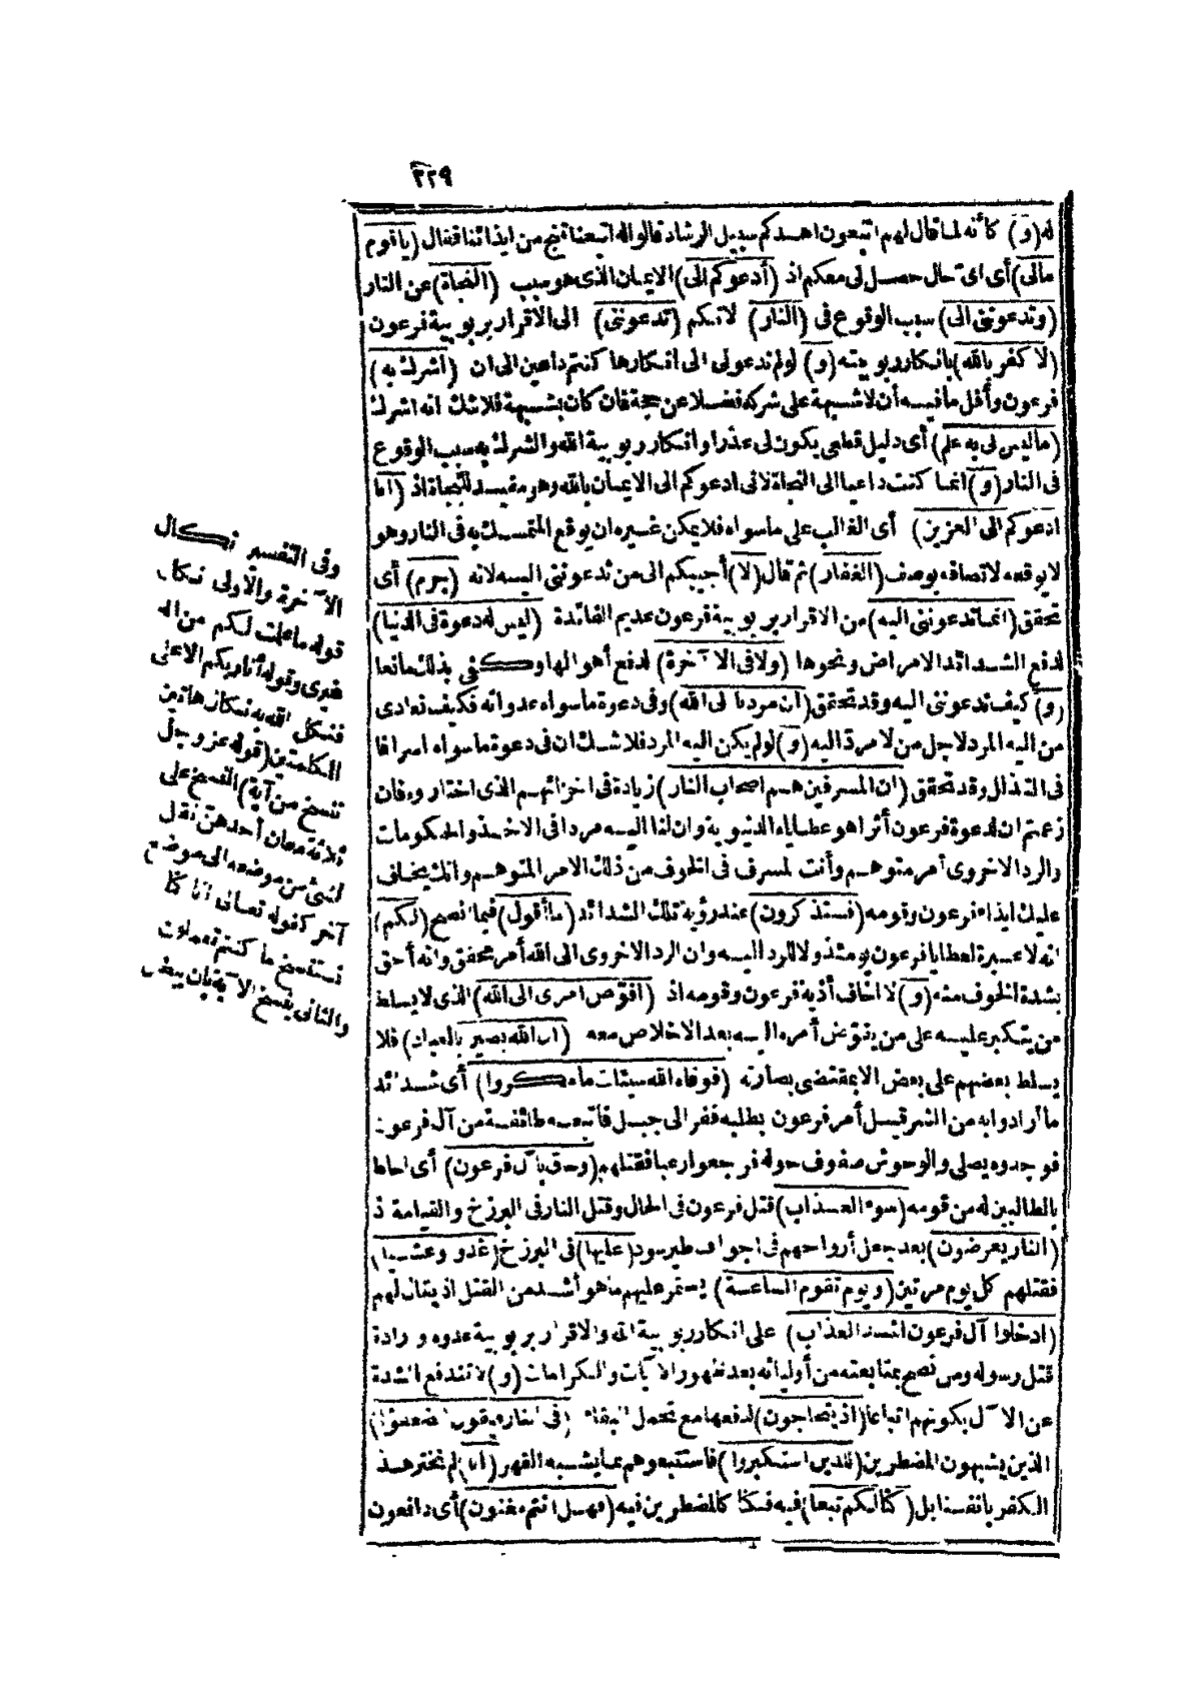 ٢٢٩
له (و) كأنه لما قال لهم اتبعون اهدكم سبيل الرشاد قالوا له اتبعنا تنج من ايذائنا فقال (يا قوم
مالى) أى اى حال حصل لى معكم اذ (أدعوكم الى) الايمان الذى هو سبب (النجاة) عن النار
(وتدعوننى الى) سبب الوقوع فى (النار) لانكم (تدعوننى) الى الاقرار بربوبية فرعون
(لاكفر بالله) بانكار ربوبيته (و) لولم تدعونى الى انكارها كنتم داعين الى ان (أشرك به)
فرعون وأقل ما فيه أن لا شبهة على شركه فضلا عن حجة فان كان بشبهة فلا شك انه اشرك
(ما ليس لى به علم) أى دليل قطعى يكون لى عذرا وانكار ربوبية الله والشرك به سبب الوقوع
فى النار (و) انما كنت داعيا الى النجاة لانى ادعوكم الى الايمان بالله وهو مفيد للنجاة اذ (أنا
ادعوكم الى العزيز) أى الغالب على ما سواه فلا يمكن غيره ان يوقع المتمسك به فى النار وهو
لا يوقعه لاتصافه بوصف (الغفار) ثم قال (لا) أجيبكم الى من تدعوننى اليه لانه (جرم) أى
تحقق (انما تدعوننى اليه) من الاقرار بربوبية فرعون عديم الفائدة (ليس له دعوة فى الدنيا)
لدفع الشدائد الامراض ونحوها (ولا فى الآخرة) لدفع أهوالها وكفى بذلك مانعا
(و) كيف تدعوننى اليه وقد تحقق (ان مردنا الى الله) وفى دعوة ما سواه عداوته فكيف نعادى
من اليه المرد لاجل من لا مرد اليه (و) لولم يكن اليه المرد فلا شك ان فى دعوة ما سواه اسرافا
فى التذلل وقد تحقق (ان المسرفين هم اصحاب النار) زيادة فى اخزائهم الذى اختاروه فان
زعمتم ان لدعوة فرعون أثرا هو عطاياه الدنيوية وان لنا اليه مردا فى الاخذ والحكومات
والرد الاخروى أمر متوهم وأنت لمسرف فى الخوف من ذلك الامر المتوهم وانك يخاف
عليك ايذاء فرعون وقومه (فستذكرون) عند رؤية تلك الشدائد (ما أقول) فيما انصح (لكم)
انه لا عبرة لعطايا فرعون يومئذ ولا للرد اليه وان الرد الاخروى الى الله أمر محقق وانه أحق
بشدة الخوف منه (و) لا اخاف أذية فرعون وقومه اذ (افوض امرى الى الله) الذى لا يسلط
من يتكبر عليه على من يفوض أمره اليه بعد الاخلاص معه (ان الله بصير بالعباد) فلا
يسلط بعضهم على بعض الا بمقتضى بصارته (فوقاه الله سيئات ما مكروا) أى شدائد
ما أرادوا به من الشر قيل أمر فرعون بطلبه ففر الى جبل فاتبعه طائفة من آل فرعون
فوجدوه يصلى والوحوش صفوف حوله فرجعوا رعبا فقتلهم (وحاق بآل فرعون) أى احاط
بالطالبين له من قومه (سوء العذاب) قتل فرعون فى الحال وقتل النار فى البرزخ والقيامة اذ
(النار يعرضون) بعد جعل أرواحهم فى اجواف طير سود (عليها) فى البرزخ (غدوا وعشيا)
فقتلهم كل يوم مرتين (ويوم تقوم الساعة) يستمر عليهم ما هو أشد من القتل اذ يقال لهم
(ادخلوا آل فرعون اشد العذاب) على انكار ربوبية الله والاقرار بربوبية عدوه وارادة
قتل رسوله ومن نصح بمتابعته من أوليائه بعد ظهور الآيات والكرامات (و) لا تندفع الشدة
عن الآل بكونهم اتباعا (اذ يتحاجون) لدفعها مع تحمل البقاء (فى النار فيقول الضعفؤا)
الذين يشبهون المضطرين (للذين استكبروا) فاستتبعوهم بما يشبه القهر (انا) لم نختر هذا
الكفر بانفسنا بل (كنا لكم تبعا) فيه فكنا كالمضطرين فيه (فهل انتم مغنون) أى دافعون
وفى التفسير نكال
الآخرة والاولى نكال
قوله ما علمت لكم من اله
غيرى وقوله أنا ربكم الاعلى
فنكل الله به نكال هاتين
الكلمتين (قوله عز وجل
ننسخ من آية) النسخ على
ثلاثة معان أحدهن نقل
الشئ من موضعه الى موضع
آخر كقوله تعالى انا كنا
نستنسخ ما كنتم تعملون
والثانى ينسخ الآية بان يبطل